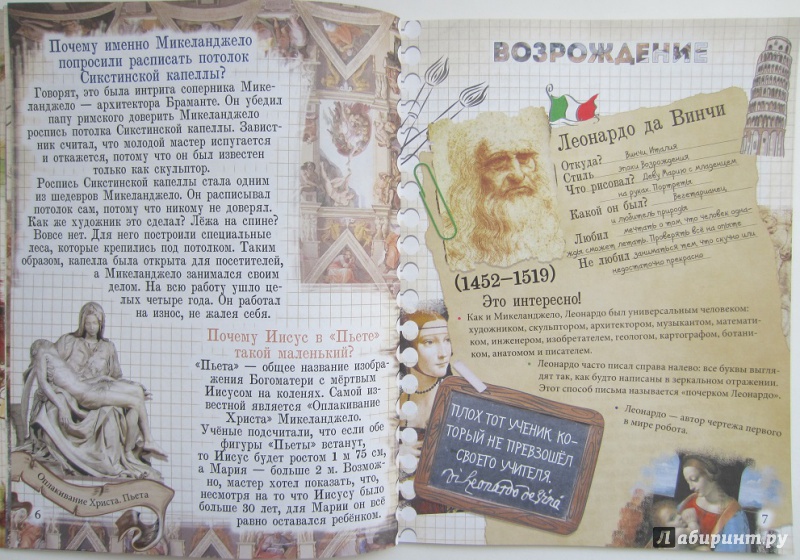 Почему именно Микеланджело
попросили расписать потолок
Сикстинской капеллы?
Говорят, это была интрига соперника Мике-
ланджело — архитектора Браманте. Он убедил
папу римского доверить Микеланджело
роспись потолка Сикстинской капеллы. Завист-
ник считал, что молодой мастер испугается
и откажется, потому что он был известен
только как скульптор.
Роспись Сикстинской капеллы стала одним
из шедевров Микеланджело. Он расписывал
потолок сам, потому что никому не доверял.
Как же художник это сделал? Лёжа на спине?
Вовсе нет. Для него построили специальные
леса, которые крепились под потолком. Таким
образом, капелла была открыта для посетителей,
а Микеланджело занимался своим
делом. На всю работу ушло це-
лых четыре года. Он работал
на износ, не жалея себя.
Почему Иисус в «Пьете»
такой маленький?
«Пьета» — общее название изобра-
жения Богоматери с мёртвым
Иисусом на коленях. Самой из-
вестной является «Оплакивание
Христа» Микеланджело.
Учёные подсчитали, что если обе
фигуры «Пьеты» встанут,
то Иисус будет ростом 1 м 75 см,
а Мария — больше 2 м. Возмож-
но, мастер хотел показать, что,
несмотря на то что Иисусу было
больше 30 лет, для Марии он всё
равно оставался ребёнком.
Оплакивание Христа. Пьета
6
ВОЗРОЖДЕНИЕ
Леонардо да Винчи
Откуда? Винчи, Италия
Стиль эпохи Возрождения
Что рисовал? Деву Марию с младенцем
на руках. Портреты
Какой он был? Вегетарианец
и любитель природы
Любил мечтать о том что человек одна-
жды сможет летать. Проверять всё на опыте
Не любил заниматься тем что скучно или
недостаточно прекрасно
(1452—1519)
Это интересно!
• Как и Микеланджело, Леонардо был универсальным человеком:
художником, скульптором, архитектором, музыкантом, математи-
ком, инженером, изобретателем, геологом, картографом, ботани-
ком, анатомом и писателем.
• Леонардо часто писал справа налево: все буквы выгля-
дят так, как будто написаны в зеркальном отражении.
Этот способ письма называется «почерком Леонардо».
• Леонардо — автор чертежа первого
в мире робота.
ПЛОХ ТОТ УЧЕНИК, КО-
ТОРЫЙ НЕ ПРЕВЗОШЁЛ
СВОЕГО УЧИТЕЛЯ.
7
Лабиринт.ру